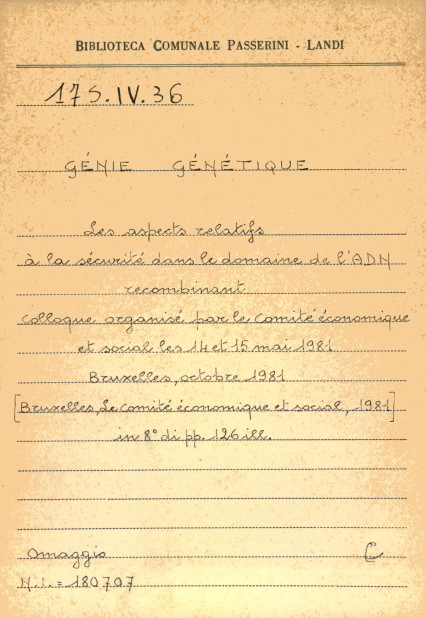 BIBLIOTECA COMUNALE PASSERINI - LANDI
17S.IV.36
GÉNIE GÉNÉTIQUE
Les aspects relatifs
à la sécurité dans le domaine de l'ADN
recombinant
Colloque organisé par le Comité économique
et social les 14 et 15 mai 1981
Bruxelles, octobre 1981
[Bruxelles, Le comité économique et social, 1981]
in 8° di pp. 126 ill.
Omaggio C
N.I. = 180707